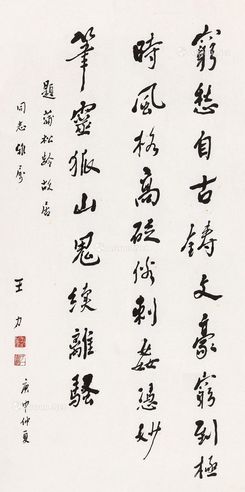 窮愁自古鑄文豪窮到極
時風格高砭俗刺姦憑妙
筆靈狐山鬼續離騷
題蒲松齡故居
同志雅屬
王力
庚申仲夏